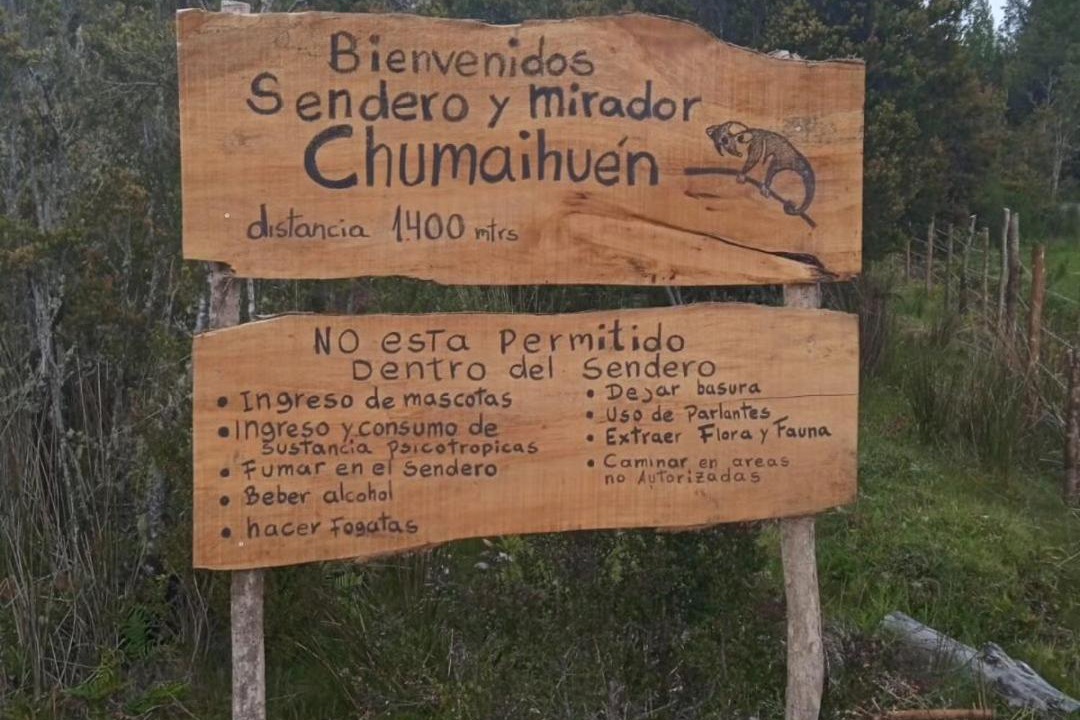 Bienvenidos
Sendero y mirador
Chumaihuén
distancia 1.400 mtrs
NO esta Permitido
Dentro del Sendero
• Ingreso de mascotas
• Ingreso y consumo de
sustancia psicotropicas
• Fumar en el sendero
• Beber alcohol
• hacer Fogatas
• Dejar basura
• Uso de Parlantes
• Extraer Flora y Fauna
• Caminar en areas
no Autorizadas